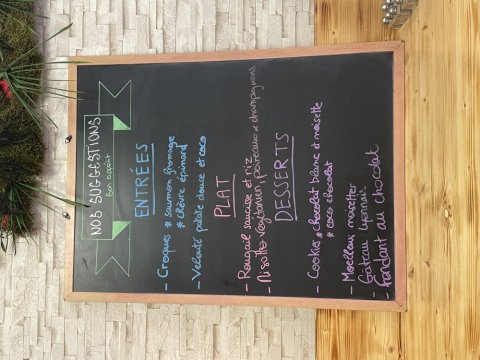 NOS SUGGESTIONS
Bon appétit
ENTRÉES
- Croques # saumon fromage
# chèvre épinard
- Velouté patate douce et coco
PLAT
- Rougail saucisse et riz
- Risotto végétarien, poireaux & champignons
DESSERTS
- Cookies # chocolat blanc et noisette
# coco chocolat
- Moelleux noisettes
- Gâteau Lyonnais
- Fondant au chocolat